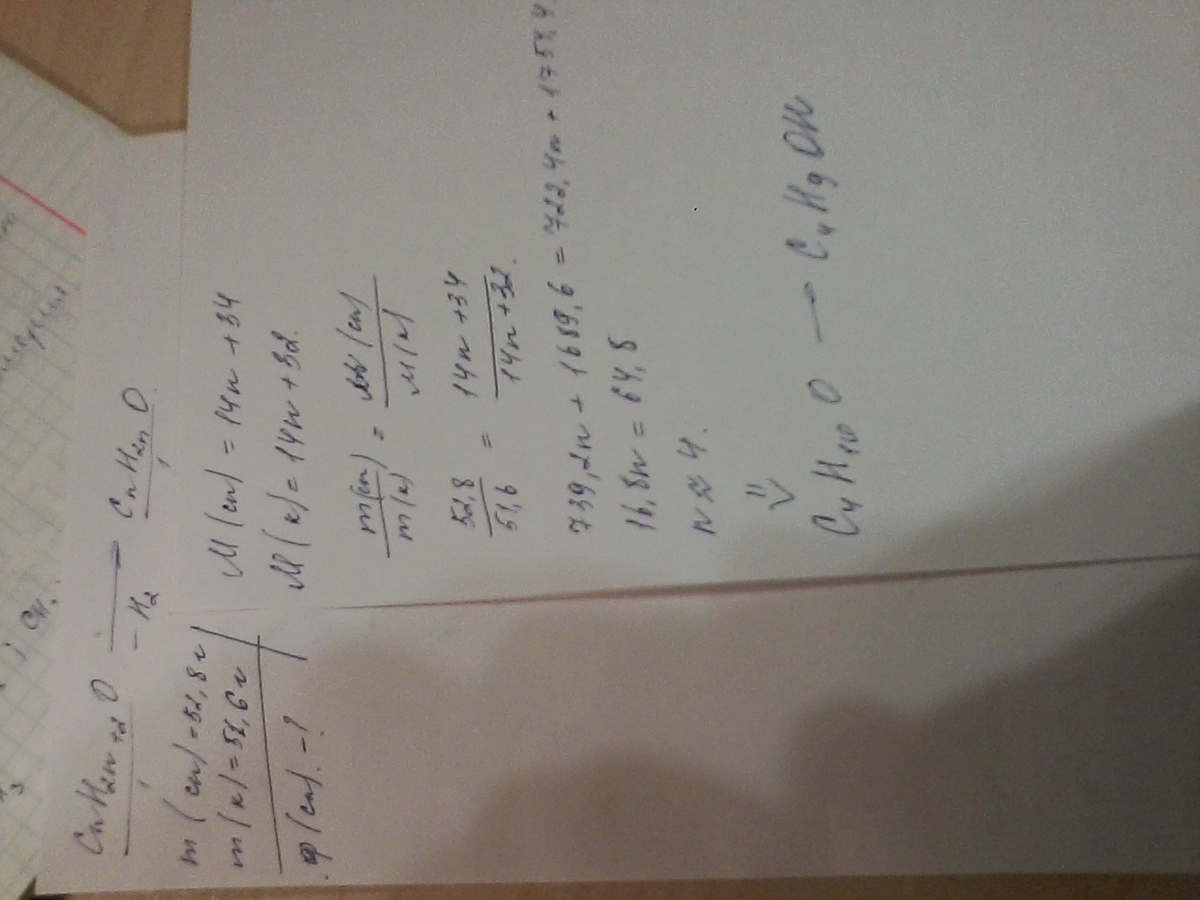 CnH2n+2O —— CnH2nO
- H2
m(сп) = 52,8 г
m(к) = 51,6 г
ф(сп) - ?
M(сп) = 14n + 34
M(к) = 14n + 32
m(сп) / m(к) = M(сп) / M(к)
52,8 / 51,6 = 14n+34 / 14n+32.
739,2n + 1689,6 = 722,4n + 1754,4.
16,8n = 64,8
n ≈ 4.
⇓
C4H10O — C4H9OH